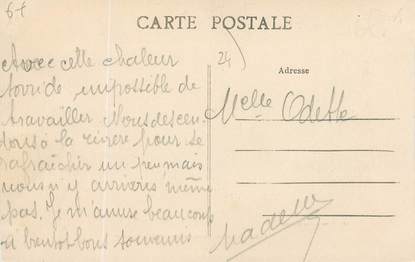 6f
CARTE POSTALE
24
Adresse
Avec cette chaleur
torride, impossible de
travailler Nous descen
dons à la rivière pour se
rafraichir un peu mais
nous n'y arrivons même
pas. Je m'amuse beaucoup
à bientot bons souvenirs
Melle Odette
Madelei